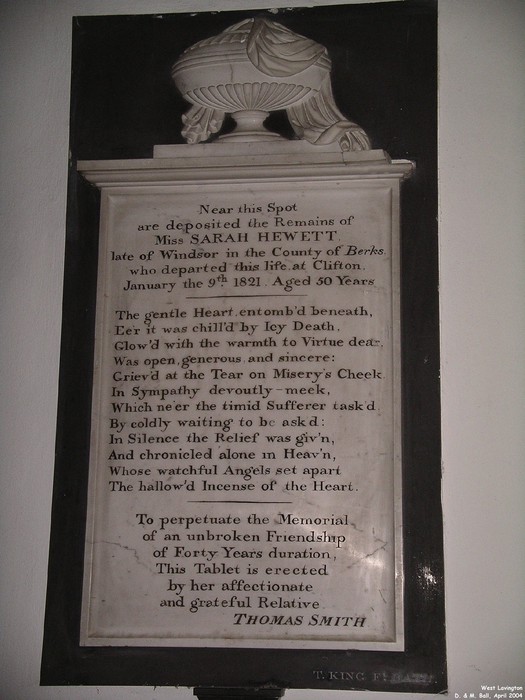 Near this Spot
are deposited the Remains of
Miss SARAH HEWETT.
late of Windsor in the County of Berks.
who departed this life, at Clifton,
January the 9th 1821. Aged 50 Years
The gentle Heart, entomb'd beneath,
E'er it was chill'd by Icy Death,
Glow'd with the warmth to Virtue dear,
Was open, generous, and sincere:
Griev'd at the Tear on Misery's Cheek
In Sympathy devoutly-meek,
Which ne'er the timid Sufferer task'd
By coldly waiting to be ask'd:
In Silence the Relief was giv'n,
And chronicled alone in Heav'n,
Whose watchful Angels set apart
The hallow'd Incense of the Heart.
To perpetuate the Memorial
of an unbroken Friendship
of Forty Years duration,
This Tablet is erected
by her affectionate
and grateful Relative
THOMAS SMITH
T. KING Ft. BATH
West Lavington
D. & M. Ball, April 2004